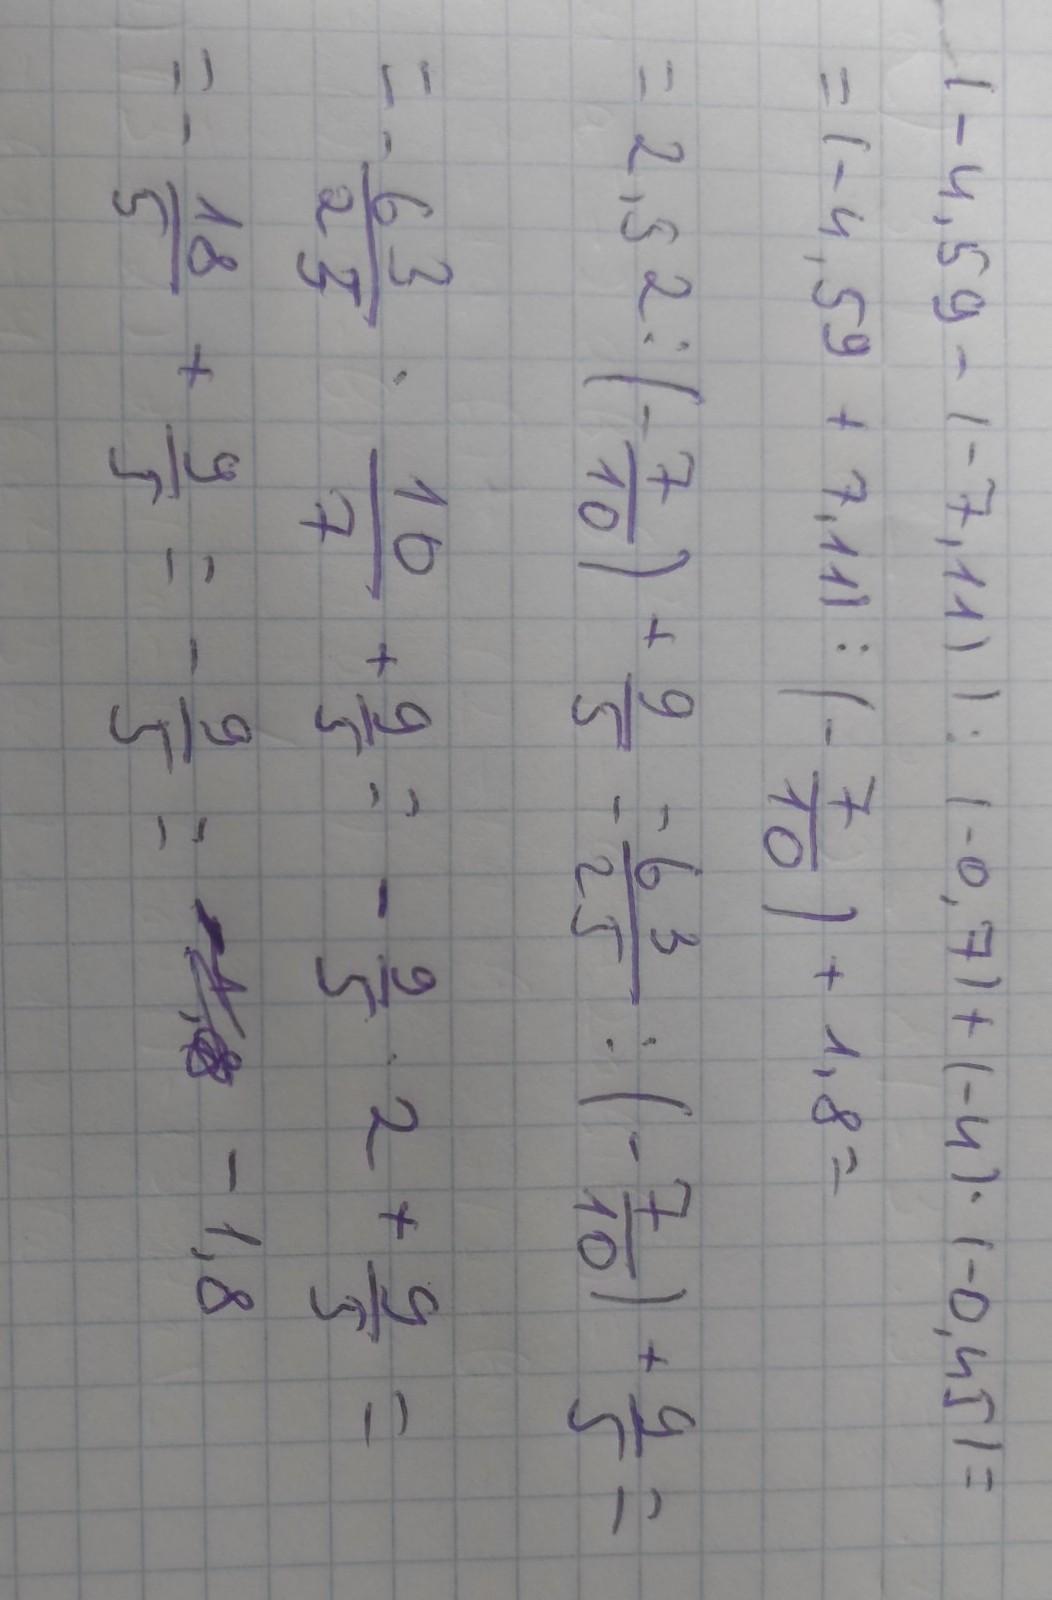 (-4,59-(-7,11)):(-0,7)+(-4)·(-0,45)=
=(-4,59+7,11):(-7/10)+1,8=
=2,52:(-7/10)+9/5=63/25:(-7/10)+9/5=
=-63/25·10/7+9/5=-9/5·2+9/5=
=-18/5+9/5=-9/5=-1,8